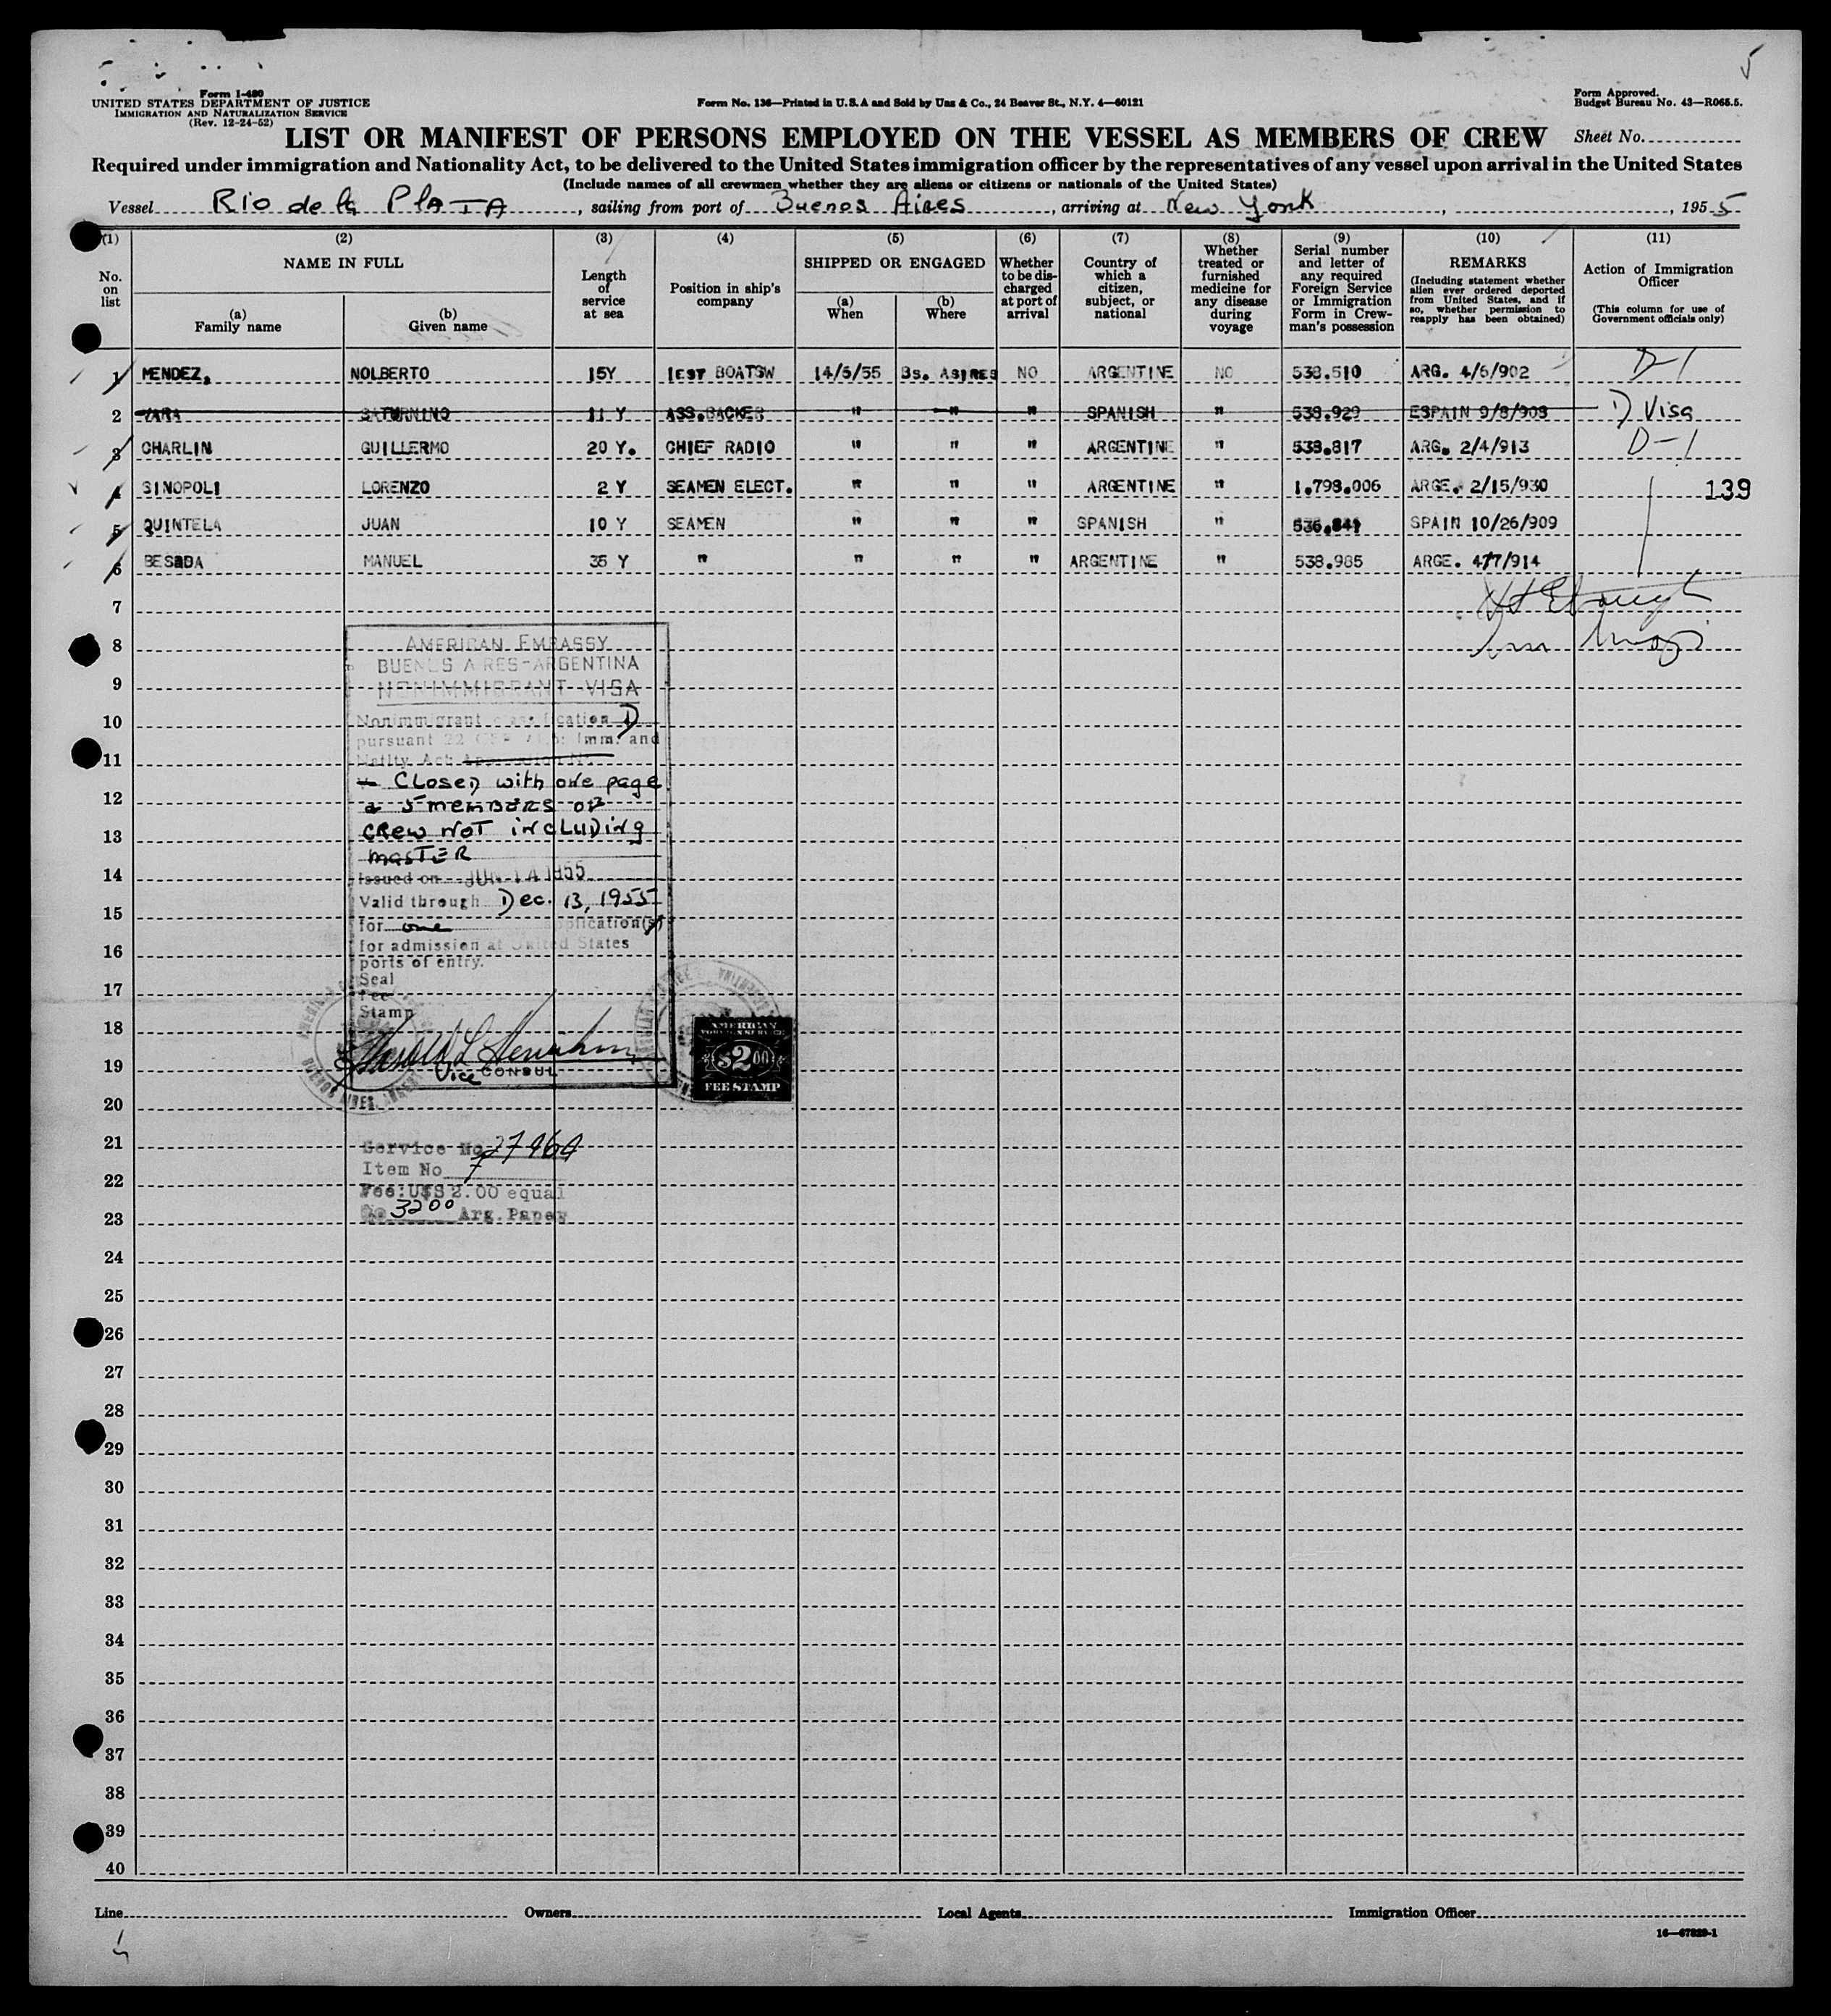 5
Form I-480
UNITED STATES DEPARTMENT OF JUSTICE
IMMIGRATION AND NATURALIZATION SERVICE
(Rev. 12-24-52)
Form No. 136—Printed in U.S.A and Sold by Unz & Co., 24 Beaver St., N.Y. 4—60121
Form Approved.
Budget Bureau No. 43—R065.5.
LIST OR MANIFEST OF PERSONS EMPLOYED ON THE VESSEL AS MEMBERS OF CREW
Sheet No.
Required under immigration and Nationality Act, to be delivered to the United States immigration officer by the representatives of any vessel upon arrival in the United States
(Include names of all crewmen whether they are aliens or citizens or nationals of the United States)
Vessel Rio de la PlaTA, sailing from port of Buenos Aires, arriving at New York, , 1955
(1) (2) (3) (4) (5) (6) (7) (8) (9) (10) (11)
No. on list
NAME IN FULL
(a) Family name
(b) Given name
Length of service at sea
Position in ship's company
SHIPPED OR ENGAGED
(a) When
(b) Where
Whether to be discharged at port of arrival
Country of which a citizen, subject, or national
Whether treated or furnished medicine for any disease during voyage
Serial number and letter of any required Foreign Service or Immigration Form in Crewman's possession
REMARKS
(Including statement whether alien ever ordered deported from United States, and if so, whether permission to reapply has been obtained)
Action of Immigration Officer
(This column for use of Government officials only)
1 MENDEZ, NOLBERTO 15Y IEST BOATSW 14/6/55 Bs. ASIRES NO ARGENTINE NO 538.510 ARG. 4/6/902 D-1
2 YARA SATURNINO 11 Y ASS.BACKER " " " SPANISH " 538.929 ESPAIN 9/8/903 D Visa
3 CHARLIN GUILLERMO 20 Y. CHIEF RADIO " " " ARGENTINE " 538.817 ARG. 2/4/913 D-1
4 SINOPOLI LORENZO 2 Y SEAMEN ELECT. " " " ARGENTINE " 1.798.006 ARGE. 2/15/930 139
5 QUINTELA JUAN 10 Y SEAMEN " " " SPANISH " 536.841 SPAIN 10/26/909
6 BESADA MANUEL 35 Y " " " " ARGENTINE " 538.985 ARGE. 4/7/914
7
8
9
10
11
12
13
14
15
16
17
18
19
20
21
22
23
24
25
26
27
28
29
30
31
32
33
34
35
36
37
38
39
40
AMERICAN EMBASSY
BUENOS AIRES-ARGENTINA
NONIMMIGRANT VISA
Nonimmigrant classification D
pursuant 22 CFR Imm. and
Natlty. Act
Closed with one page
5 members of
crew not including
master
Issued on JUN 14 1955
Valid through Dec. 13, 1955
for one application(s)
for admission at United States
ports of entry.
Seal
Fee
Stamp
Vice CONSUL
AMERICAN
FOREIGN SERVICE
$2.00
FEE STAMP
Service No. 27464
Item No 7
Fee: U$S 2.00 equal
3200 Arg. Paper
Line
Owners
Local Agents
Immigration Officer
16—67829-1